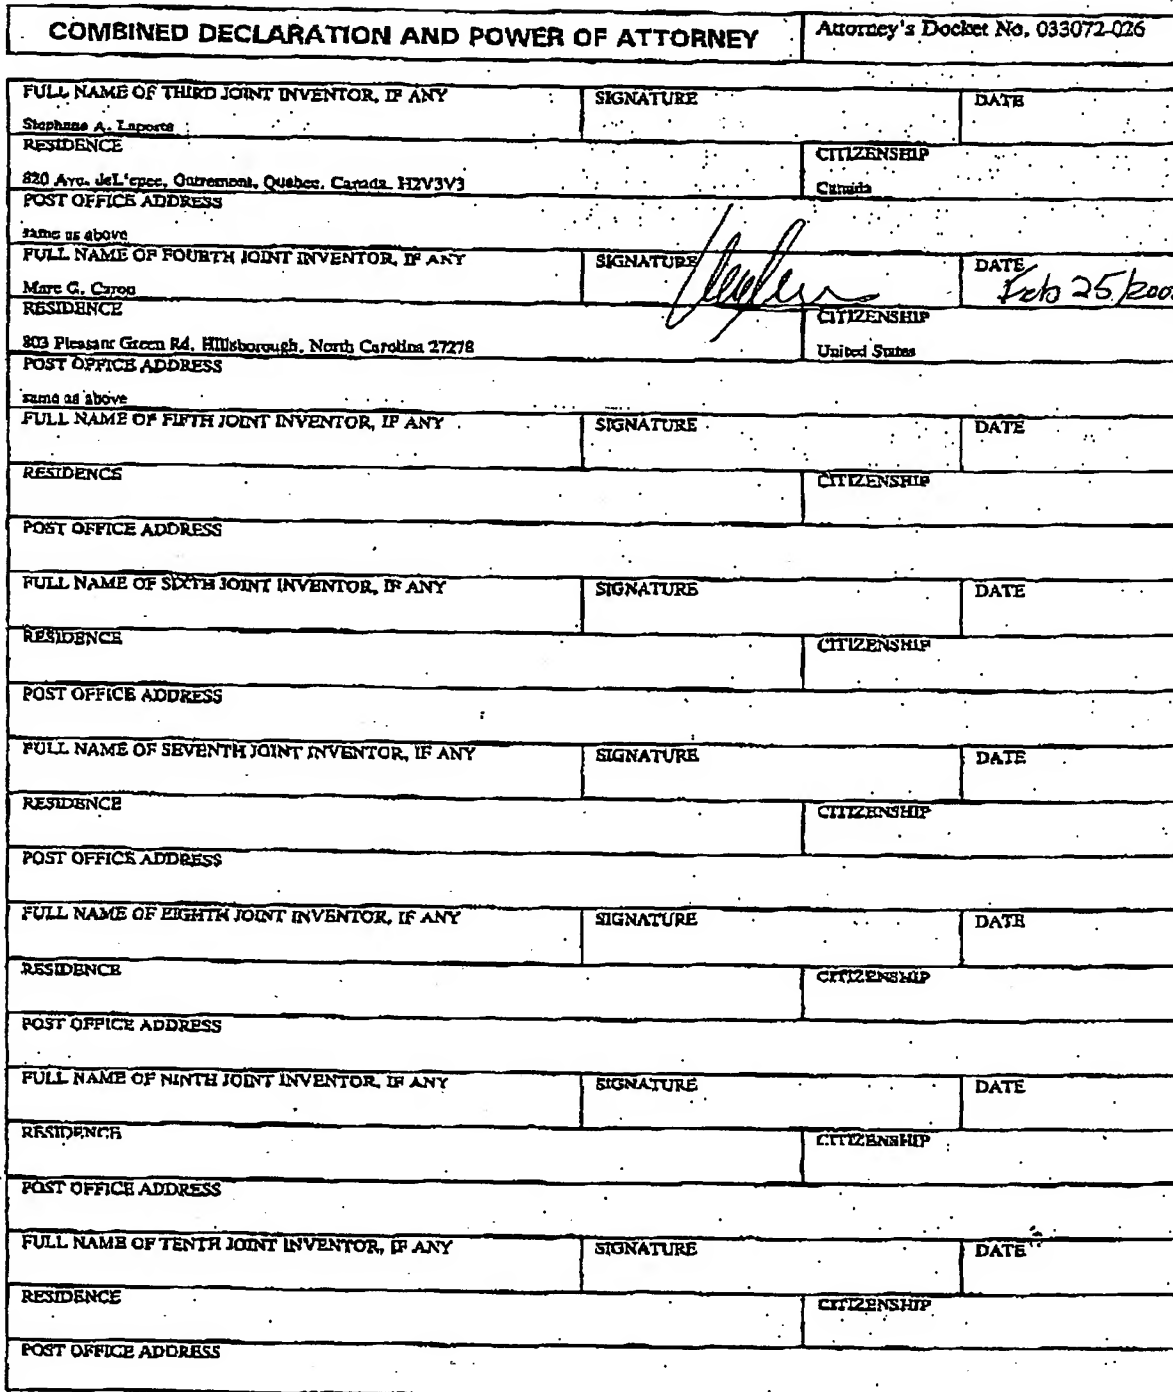 COMBINED DECLARATION AND POWER OF ATTORNEY
Attorney's Docket No. 033072-026
FULL NAME OF THIRD JOINT INVENTOR, IF ANY SIGNATURE DATE
Stephane A. Laporte
RESIDENCE CITIZENSHIP
820 Ave. deL'epee, Outremont, Quebec, Canada H2V3V3 Canada
POST OFFICE ADDRESS
same as above
FULL NAME OF FOURTH JOINT INVENTOR, IF ANY SIGNATURE DATE
Marc G. Caron Feb 25/200
RESIDENCE CITIZENSHIP
803 Pleasant Green Rd, Hillsborough, North Carolina 27278 United States
POST OFFICE ADDRESS
same as above
FULL NAME OF FIFTH JOINT INVENTOR, IF ANY SIGNATURE DATE
RESIDENCE CITIZENSHIP
POST OFFICE ADDRESS
FULL NAME OF SIXTH JOINT INVENTOR, IF ANY SIGNATURE DATE
RESIDENCE CITIZENSHIP
POST OFFICE ADDRESS
FULL NAME OF SEVENTH JOINT INVENTOR, IF ANY SIGNATURE DATE
RESIDENCE CITIZENSHIP
POST OFFICE ADDRESS
FULL NAME OF EIGHTH JOINT INVENTOR, IF ANY SIGNATURE DATE
RESIDENCE CITIZENSHIP
POST OFFICE ADDRESS
FULL NAME OF NINTH JOINT INVENTOR, IF ANY SIGNATURE DATE
RESIDENCE CITIZENSHIP
POST OFFICE ADDRESS
FULL NAME OF TENTH JOINT INVENTOR, IF ANY SIGNATURE DATE
RESIDENCE CITIZENSHIP
POST OFFICE ADDRESS